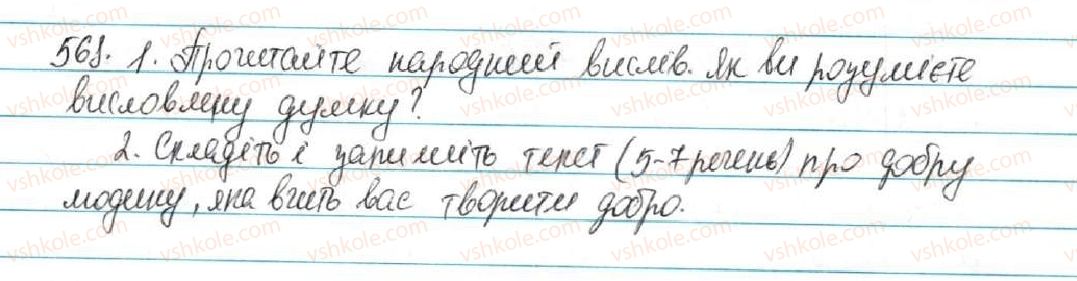 561. 1. Прочитайте народний вислів. Як ви розумієте
висловлену думку?
2. Складіть і запишіть текст (5-7 речень) про добру
людину, яка вчить вас творити добро.